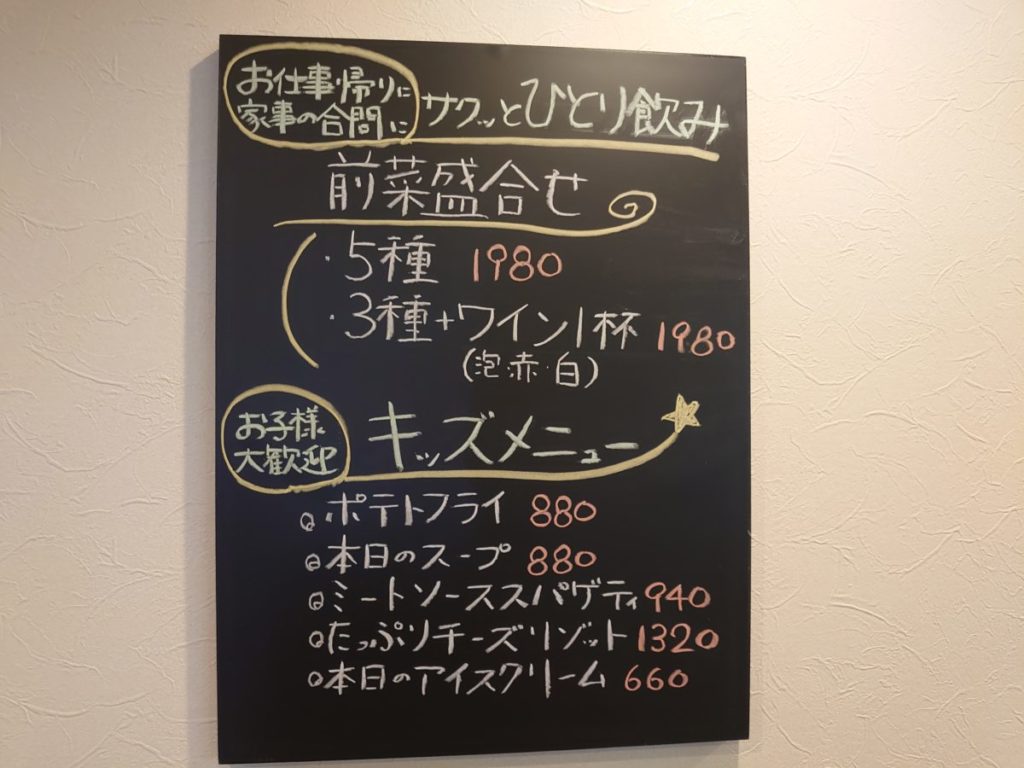 お仕事帰りに
家事の合間に
サクッとひとり飲み
前菜盛合せ
・5種 1980
・3種+ワイン1杯 1980
(泡・赤・白)
お子様
大歓迎
キッズメニュー
ポテトフライ 880
本日のスープ 880
ミートソーススパゲティ 940
たっぷりチーズリゾット 1320
本日のアイスクリーム 660